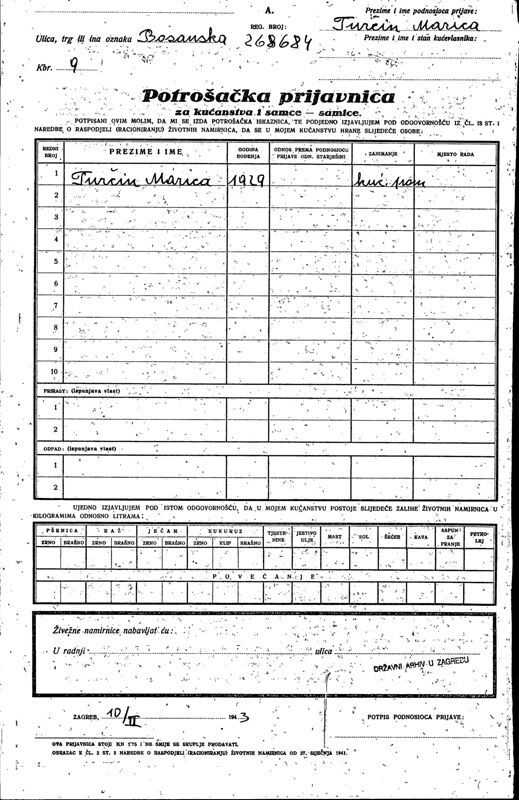 A.
Prezime i ime podnosioca prijave:
REG. BROJ: Turčin Marica
Ulica, trg ili ina oznaka Bosanska 268684 Prezime i ime i stan kućevlasnika:
Kbr. 9
Potrošačka prijavnica
za kućanstva i samce — samice.
POTPISANI OVIM MOLIM, DA MI SE IZDA POTROŠAČKA ISKAZNICA, TE PODJEDNO IZJAVLJUJEM POD ODGOVORNOŠĆU IZ ČL. 18 ST. 1
NAREDBE O RASPODJELI (RACIONIRANJU) ŽIVOTNIH NAMIRNICA, DA SE U MOJEM KUĆANSTVU HRANE SLIJEDEĆE OSOBE:
REDNI BROJ PREZIME I IME GODINA ROĐENJA ODNOS PREMA PODNOSIOCU PRIJAVE ODN. STARJEŠINI ZANIMANJE MJESTO RADA
1 Turčin Marica 1929 kuć. pom
2
3
4
5
6
7
8
9
10
PRIRAST: (ispunjava vlast)
1
2
ODPAD: (ispunjava vlast)
1
2
UJEDNO IZJAVLJUJEM POD ISTOM ODGOVORNOŠĆU, DA U MOJEM KUĆANSTVU POSTOJE SLIJEDEĆE ZALIHE ŽIVOTNIH NAMIRNICA U
KILOGRAMIMA ODNOSNO LITRAMA:
PŠENICA RAŽ JEČAM KUKURUZ TJESTENINE JESTIVO ULJE MAST SOL ŠEĆER KAVA SAPUN ZA PRANJE PETROLEJ
ZRNO BRAŠNO ZRNO BRAŠNO ZRNO BRAŠNO ZRNO KLIP BRAŠNO
POVEĆANJE
Živežne namirnice nabavljat ću:
U radnji ulica
DRŽAVNI ARHIV U ZAGREBU
ZAGREB, 10/II 1943
POTPIS PODNOSIOCA PRIJAVE:
OVA PRIJAVNICA STOJI KN 1.75 I NE SMIJE SE SKUPLJE PRODAVATI.
OBRAZAC K ČL. 2 ST. 3 NAREDBE O RASPODJELI (RACIONIRANJU) ŽIVOTNIH NAMIRNICA OD 27. SIJEČNJA 1941.